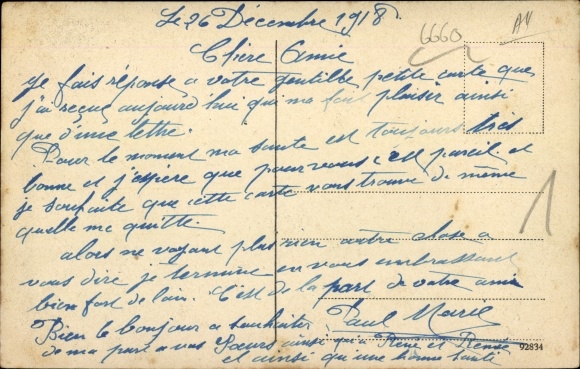 Le 26 Décembre 1918.
6660 AN
Chère Amie
Je fais réponse a votre gentille petite carte que
j'ai reçue aujourd'hui qui ma fait plaisir ainsi
que d'une lettre.
Pour le moment ma santé est toujours très
bonne et j'espère que pour vous c'est pareil et
je souhaite que cette carte vous trouve de même
quelle me quitte.
alors ne voyant plus rien autre chose a
vous dire je termine en vous embrassant
bien fort de loin. C'est de la part de votre amie
Paul Marie
Bien le bonjour a souhaiter
de ma part a vos Sœurs ainsi qu'a René et Renée
et ainsi qu'une bonne santé
1
92834